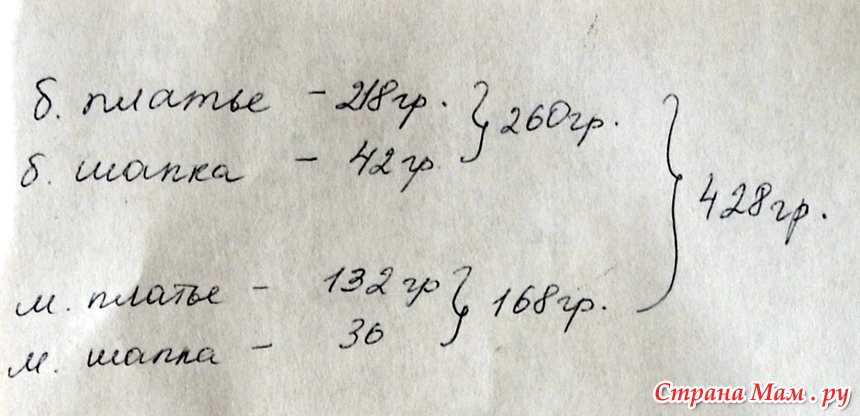 б. платье - 218гр. } 260гр.
б. шапка - 42гр
} 428гр.
м. платье - 132гр } 168гр.
м. шапка - 36
Страна Мам.ру